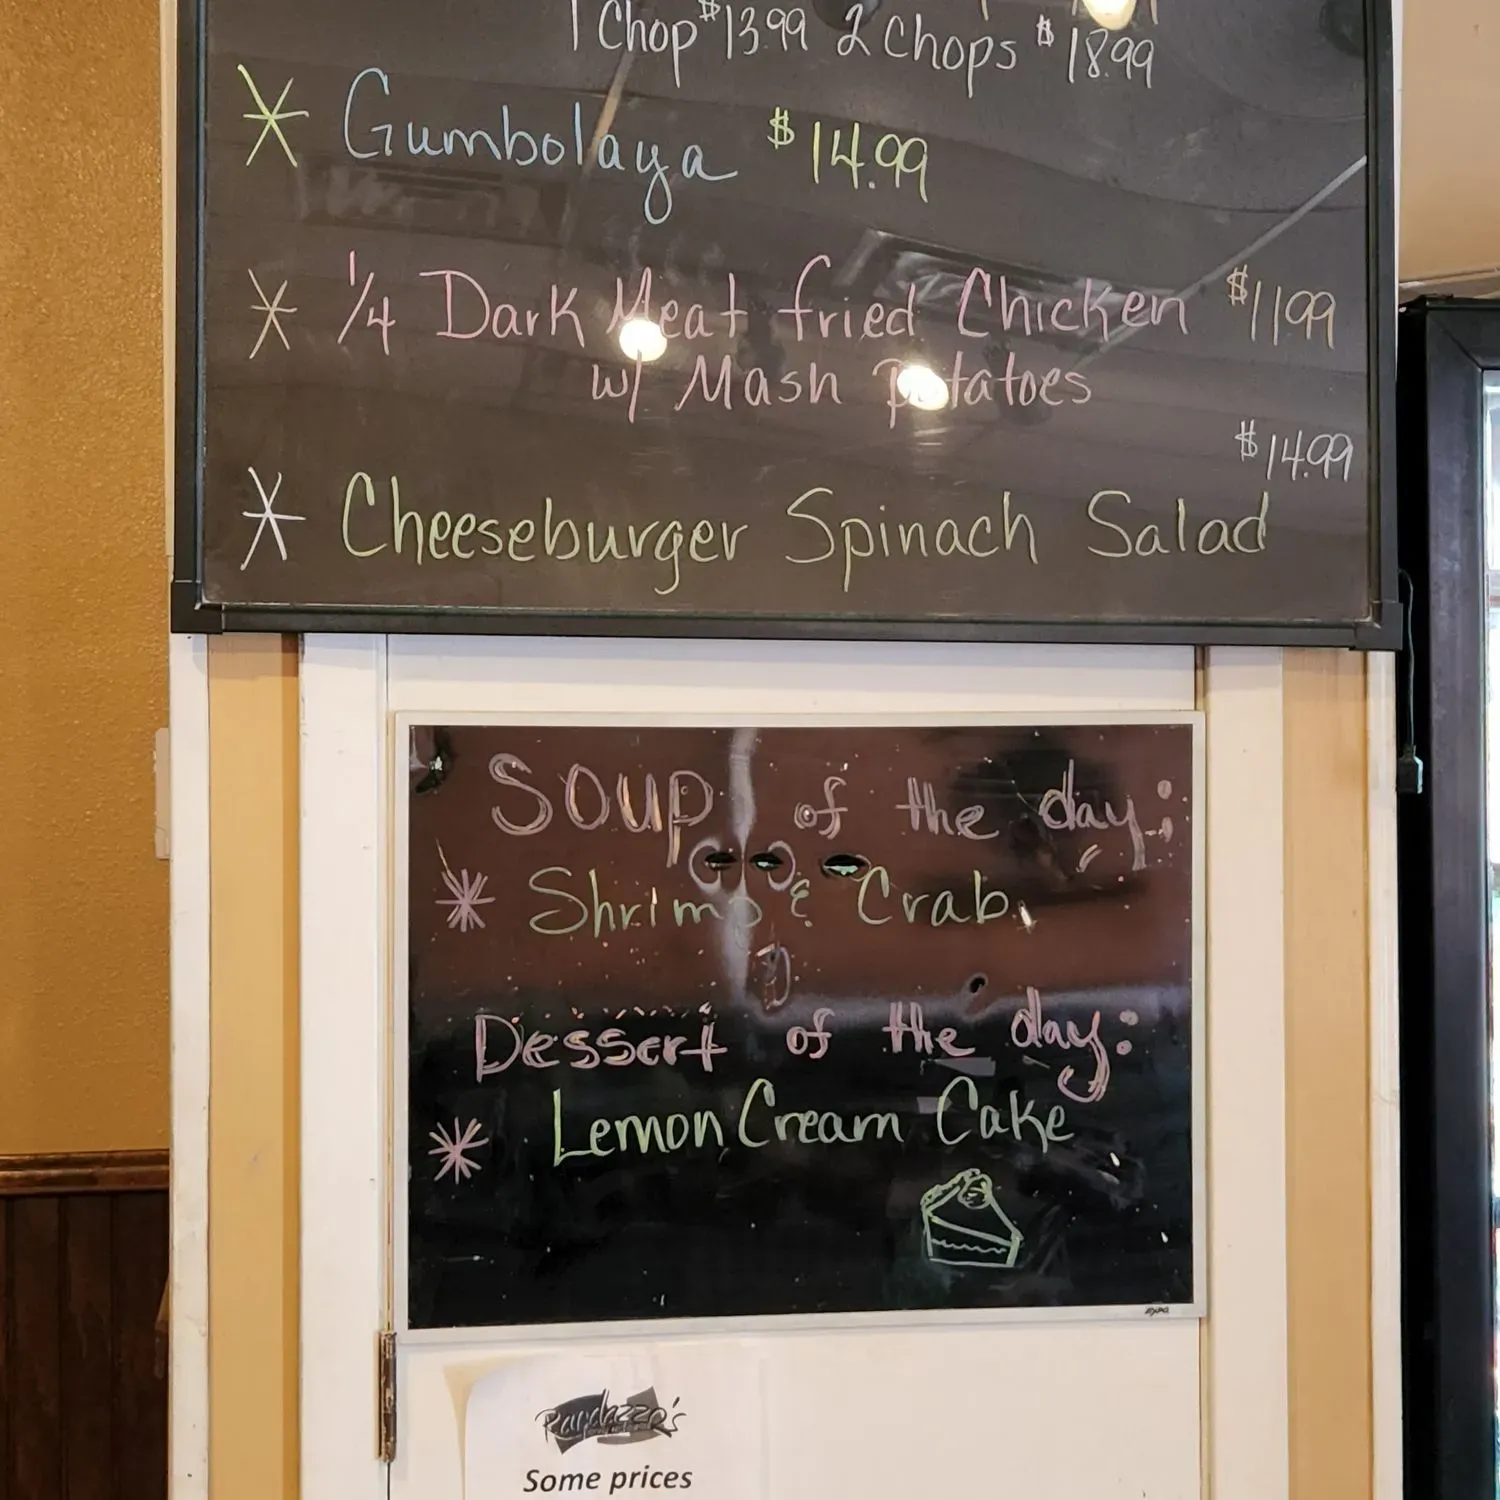 1 Chop $13.99 2 Chops $18.99
Gumbolaya $14.99
1/4 Dark Meat fried Chicken $11.99
w/ Mash potatoes
$14.99
Cheeseburger Spinach Salad
Soup of the day:
Shrimp & Crab
Dessert of the day:
Lemon Cream Cake
EXPO
Randazzo's
Some prices